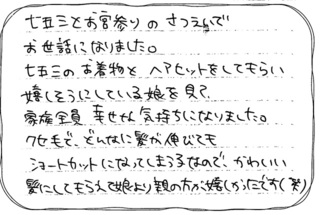 七五三とお宮参りのさつえいで
お世話になりました。
七五三のお着物とヘアセットをしてもらい
嬉しそうにしている娘を見て
家族全員 幸せな気持ちになりました。
クセ毛で、どんなに髪が伸びても
ショートカットになってしまう子なので、かわいい
髪にしてもらえて娘より親の方が嬉しかったです(笑)